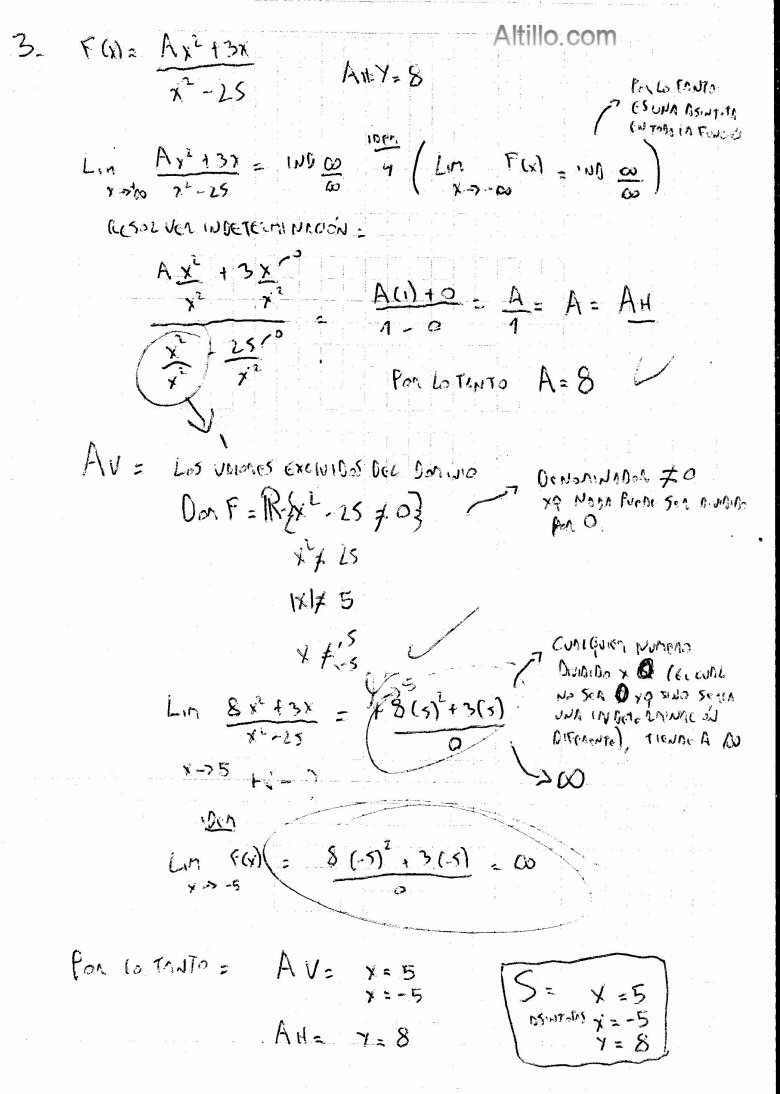 Altillo.com
3. F(x) = Ax² + 3x / x² - 25
AH: Y = 8
Lim x→+∞ Ax² + 3x / x² - 25 = IND ∞/∞
( Lim x→-∞ F(x) = IND ∞/∞ )
POR LO TANTO
ES UNA ASINTOTA
EN TODA LA FUNCIÓN
RESOLVER INDETERMINACIÓN =
A x²/x² + 3 x/x² →0
x²/x² - 25/x² →0
= A(1) + 0 / 1 - 0 = A/1 = A = AH
POR LO TANTO A = 8
AV = LOS VALORES EXCLUIDOS DEL DOMINIO
Dom F = ℝ-{x² - 25 ≠ 0}
DENOMINADOR ≠ 0
XQ NADA PUEDE SER DIVIDIDO
POR 0.
x² ≠ 25
|x| ≠ 5
x ≠ 5
-5
Lim x→5 8x² + 3x / x² - 25 = 8(5)² + 3(5) / 0
→ ∞
CUALQUIER NUMERO
DIVIDIDO X 0 (EL CUAL
NO SEA 0 XQ SINO SERIA
UNA INDETERMINACIÓN
DIFERENTE), TIENDE A ∞
IDEM
Lim x→-5 F(x) = 8(-5)² + 3(-5) / 0 = ∞
POR LO TANTO = AV = x = 5
x = -5
AH = Y = 8
S = X = 5
ASINTOTAS x = -5
Y = 8